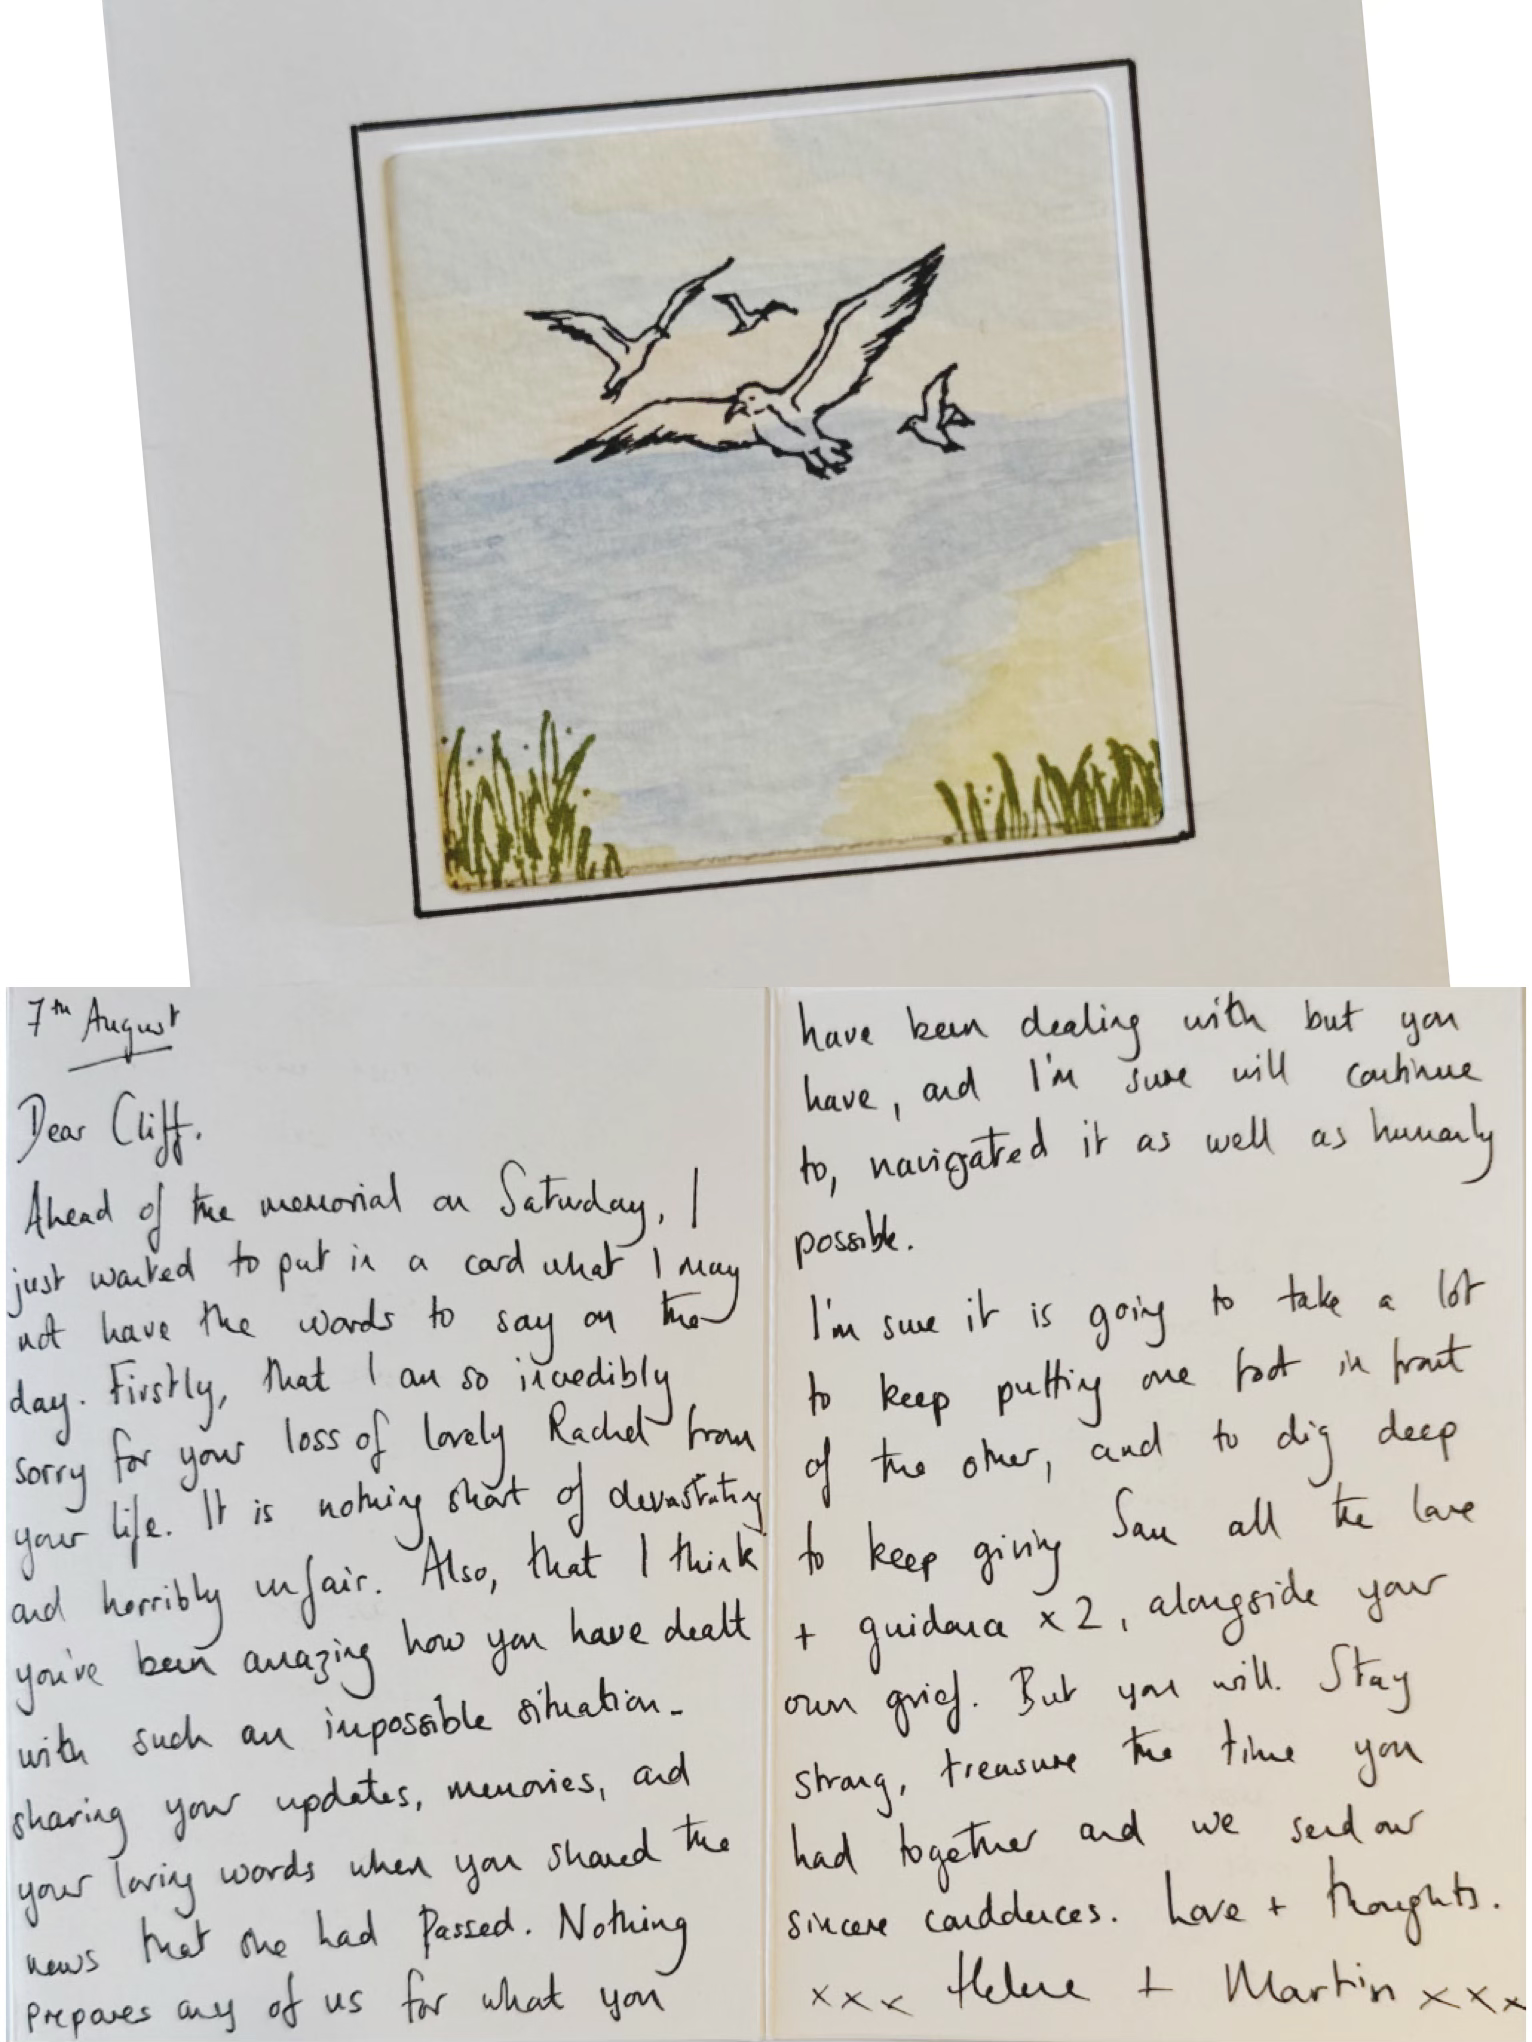 7th August
Dear Cliff.
Ahead of the memorial on Saturday, I
just wanted to put in a card what I may
not have the words to say on the
day. Firstly, that I am so incredibly
sorry for your loss of lovely Rachel from
your life. It is nothing short of devastating
and horribly unfair. Also, that I think
you've been amazing how you have dealt
with such an impossible situation -
sharing your updates, memories, and
your loving words when you shared the
news that she had Passed. Nothing
prepares any of us for what you
have been dealing with but you
have, and I'm sure will continue
to, navigated it as well as humanly
possible.
I'm sure it is going to take a lot
to keep putting one foot in front
of the other, and to dig deep
to keep giving Sam all the love
+ guidance x2, alongside your
own grief. But you will. Stay
strong, treasure the time you
had together and we send our
sincere condolences. Love + thoughts.
xxx Helene + Martin xxx